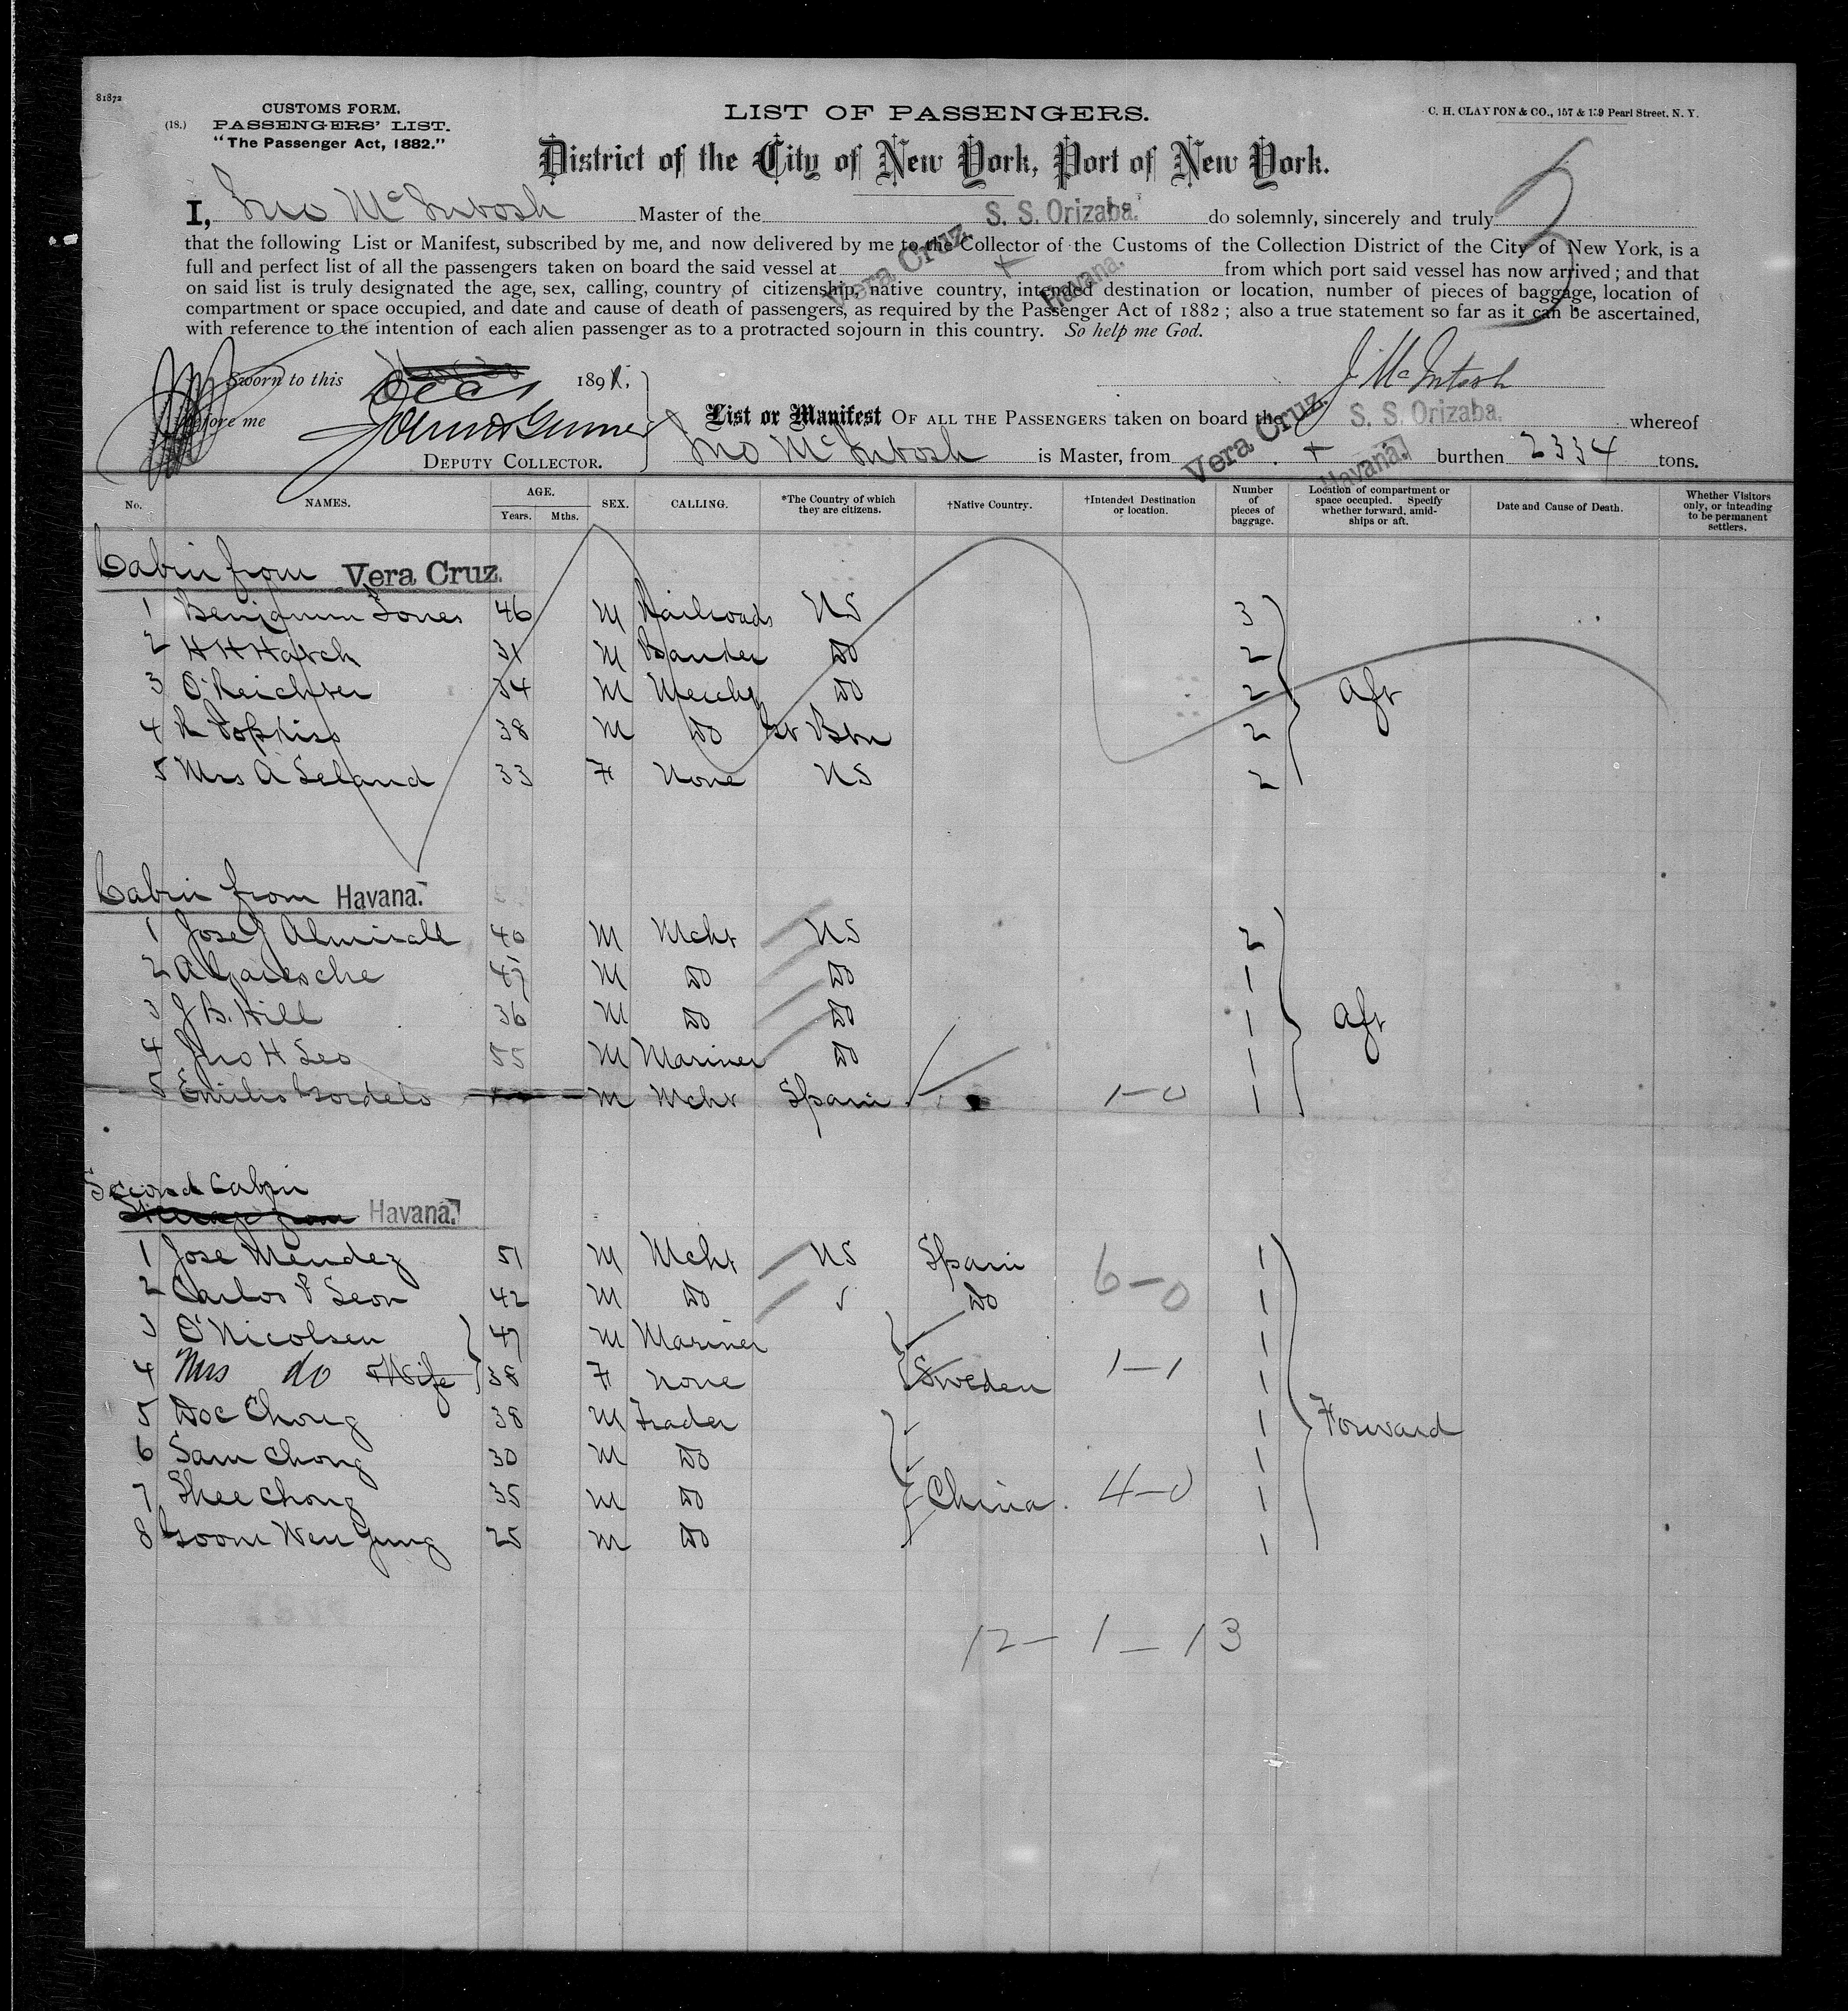 81872
CUSTOMS FORM.
(18.) PASSENGERS' LIST.
"The Passenger Act, 1882."
LIST OF PASSENGERS.
C. H. CLAYTON & CO., 157 & 159 Pearl Street, N. Y.
District of the City of New York, Port of New York.
I, Jno McIntosh Master of the S. S. Orizaba. do solemnly, sincerely and truly
that the following List or Manifest, subscribed by me, and now delivered by me to the Collector of the Customs of the Collection District of the City of New York, is a
full and perfect list of all the passengers taken on board the said vessel at Vera Cruz. + Havana. from which port said vessel has now arrived; and that
on said list is truly designated the age, sex, calling, country of citizenship, native country, intended destination or location, number of pieces of baggage, location of
compartment or space occupied, and date and cause of death of passengers, as required by the Passenger Act of 1882; also a true statement so far as it can be ascertained,
with reference to the intention of each alien passenger as to a protracted sojourn in this country. So help me God.
Sworn to this Dec 189
J McIntosh
before me
List or Manifest OF ALL THE PASSENGERS taken on board the S. S. Orizaba. whereof
DEPUTY COLLECTOR.
Jno McIntosh is Master, from Vera Cruz. + Havana. burthen 2334 tons.
No. NAMES. AGE. Years. Mths. SEX. CALLING. *The Country of which they are citizens. †Native Country. †Intended Destination or location. Number of pieces of baggage. Location of compartment or space occupied. Specify whether forward, amidships or aft. Date and Cause of Death. Whether Visitors only, or intending to be permanent settlers.
Cabin from Vera Cruz.
1 Benjamin Jones 46 M Railroads US 3
2 H H Hatch 31 M Do 2
3 O Reichter 34 M Mercht Do 2 Aft
4 R 38 M Do Gt Btn 2
5 Mrs A Leland 33 F None US 2
Cabin from Havana.
1 Jose J Almirall 40 M Mcht US 2
2 A Garesche 47 M Do Do 1
3 J B. Hill 36 M Do Do 1 Aft
4 Jno H Leo 55 M Mariner Do 1
5 Emilio M Mcht Spain 1-0 1
Second Cabin
Steerage from Havana.
1 Jose Mendez 51 M Mcht US Spain 1
2 Carlos F Leon 42 M Do Do 6-0 1
3 O Nicolsen 47 M Mariner 1
4 Mrs do Wife 38 F None Sweden 1-1 1
5 Doc Chong 38 M Trader 1 Forward
6 Sam Chong 30 M Do 1
7 Shee Chong 35 M Do China. 4-0 1
8 Goom Wen Gung 25 M Do 1
12 - 1 - 13